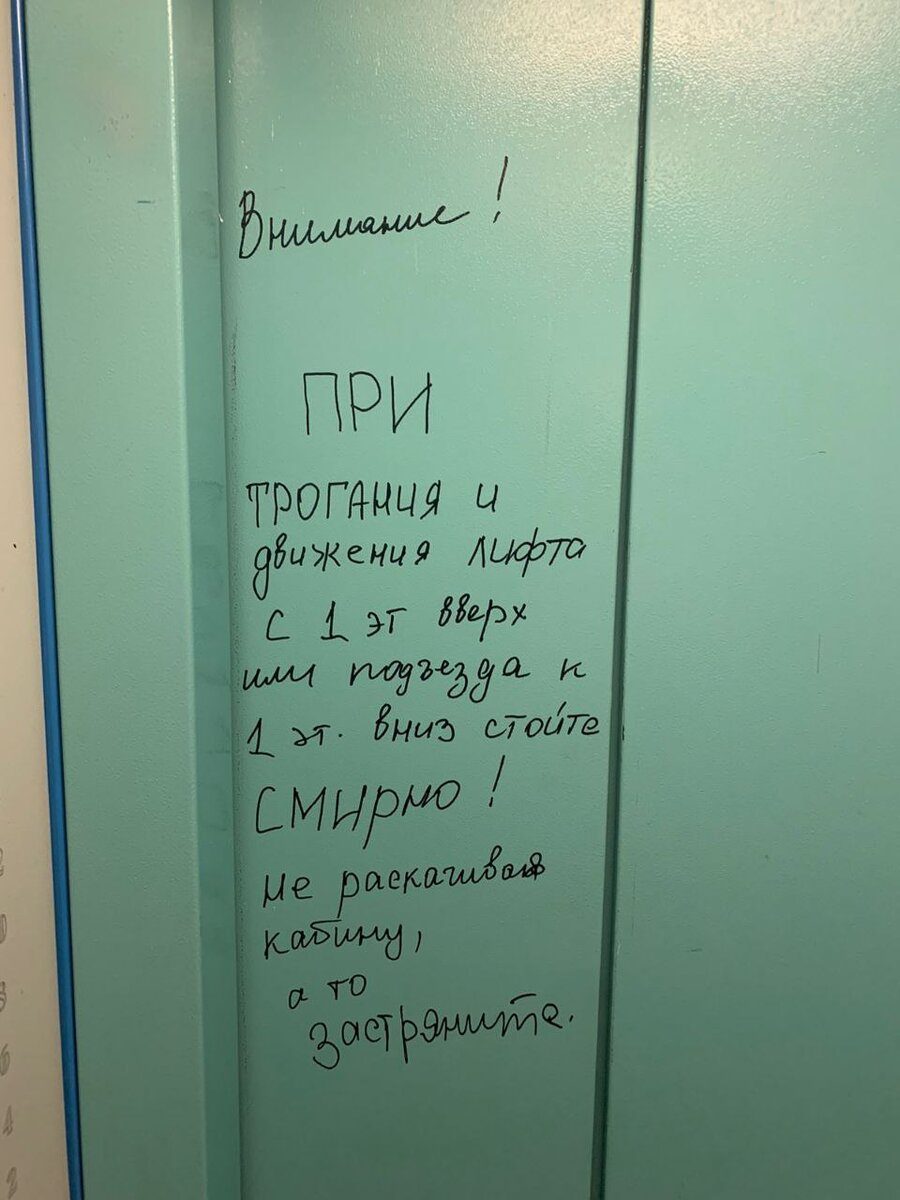 Внимание!
ПРИ
ТРОГАНИЯ и
движения лифта
с 1 эт вверх
или подъезда к
1 эт. вниз стойте
СМИРНО!
не раскачивая
кабину,
а то
застряните.